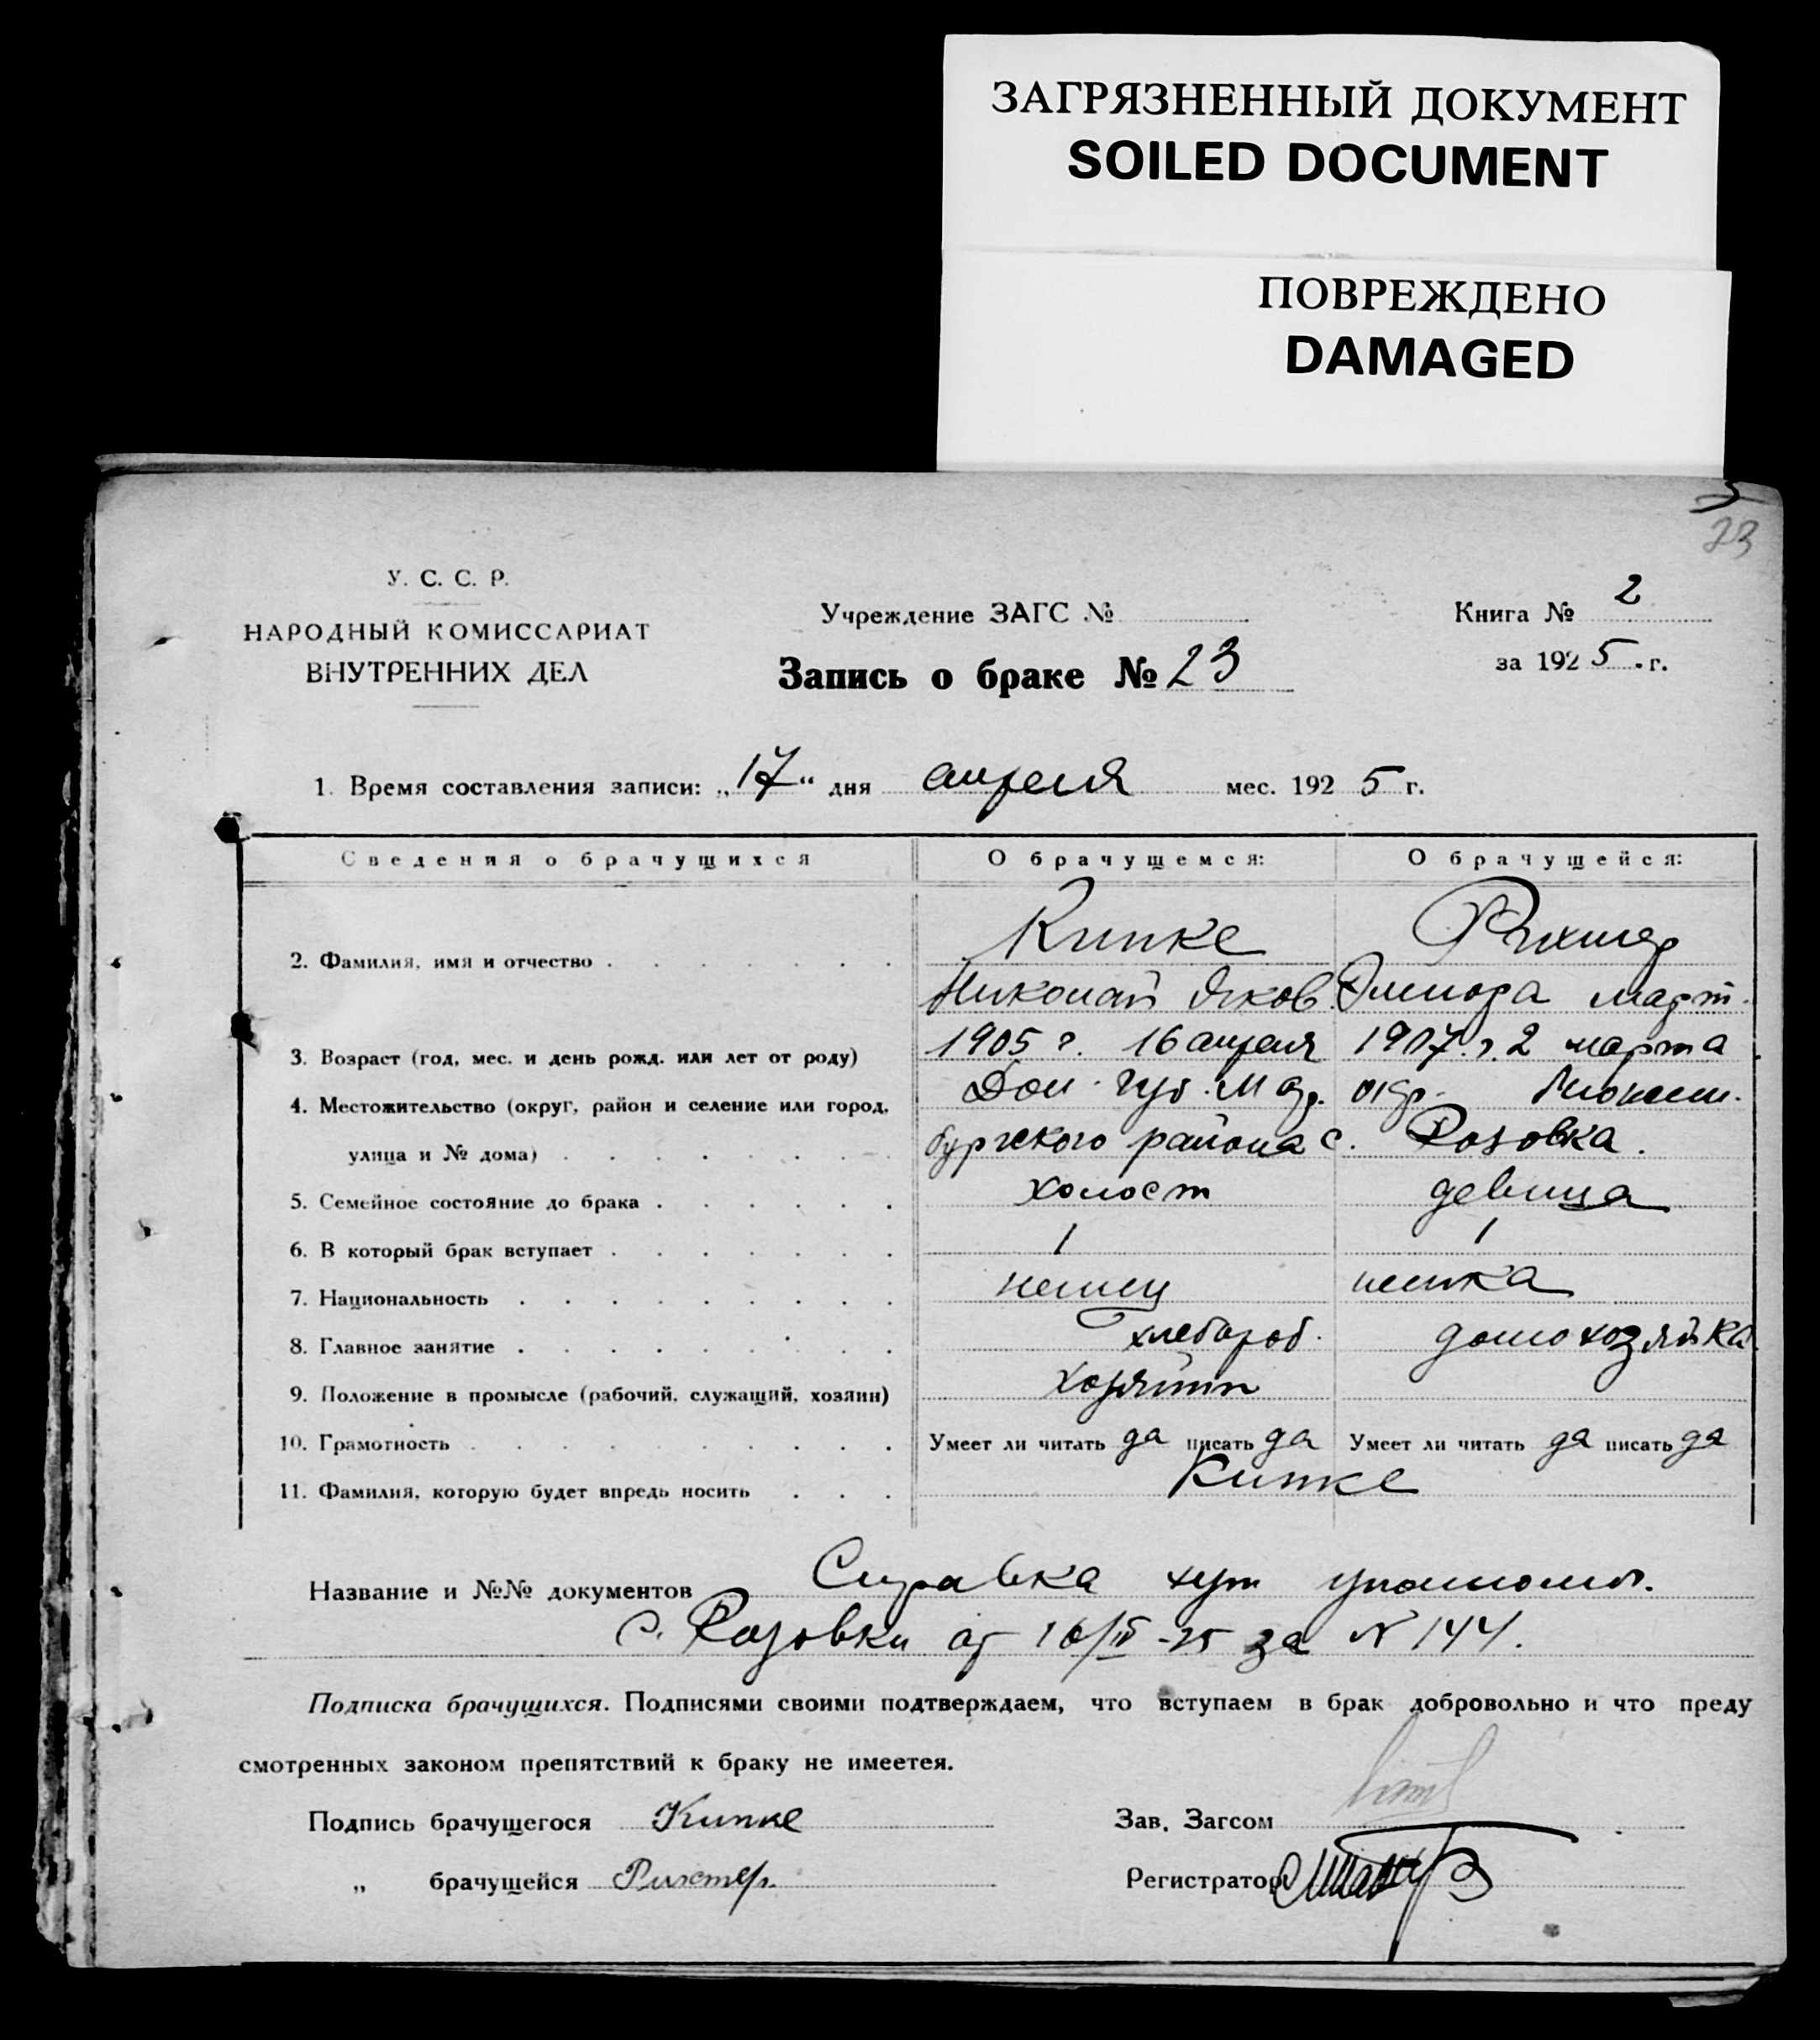 ЗАГРЯЗНЕННЫЙ ДОКУМЕНТ
SOILED DOCUMENT
ПОВРЕЖДЕНО
DAMAGED
23
У. С. С. Р.
НАРОДНЫЙ КОМИССАРИАТ
ВНУТРЕННИХ ДЕЛ
Учреждение ЗАГС №
Запись о браке № 23
Книга № 2
за 1925 г.
1. Время составления записи: „17“ дня апреля мес. 1925 г.
Сведения о брачущихся О брачущемся: О брачущейся:
2. Фамилия, имя и отчество Кипке Рихтер
Николай Яков. Элеонора март.
3. Возраст (год, мес. и день рожд. или лет от роду) 1905 г. 16 апреля 1907 г. 2 марта
4. Местожительство (округ, район и селение или город, Дон. губ. Мар. окр. Люксем-
улица и № дома) бургского района с. Розовка.
5. Семейное состояние до брака холост девица
6. В который брак вступает 1 1
7. Национальность немец немка
8. Главное занятие хлебороб. домохозяйка
9. Положение в промысле (рабочий, служащий, хозяин) хозяин
10. Грамотность Умеет ли читать да писать да Умеет ли читать да писать да
11. Фамилия, которую будет впредь носить Кипке
Название и №№ документов Справка
с. Розовки от 16/IV-25 за № 144.
Подписка брачущихся. Подписями своими подтверждаем, что вступаем в брак добровольно и что преду
смотренных законом препятствий к браку не имеетея.
Подпись брачущегося Кипке Зав. Загсом
„ брачущейся Рихтер. Регистратор